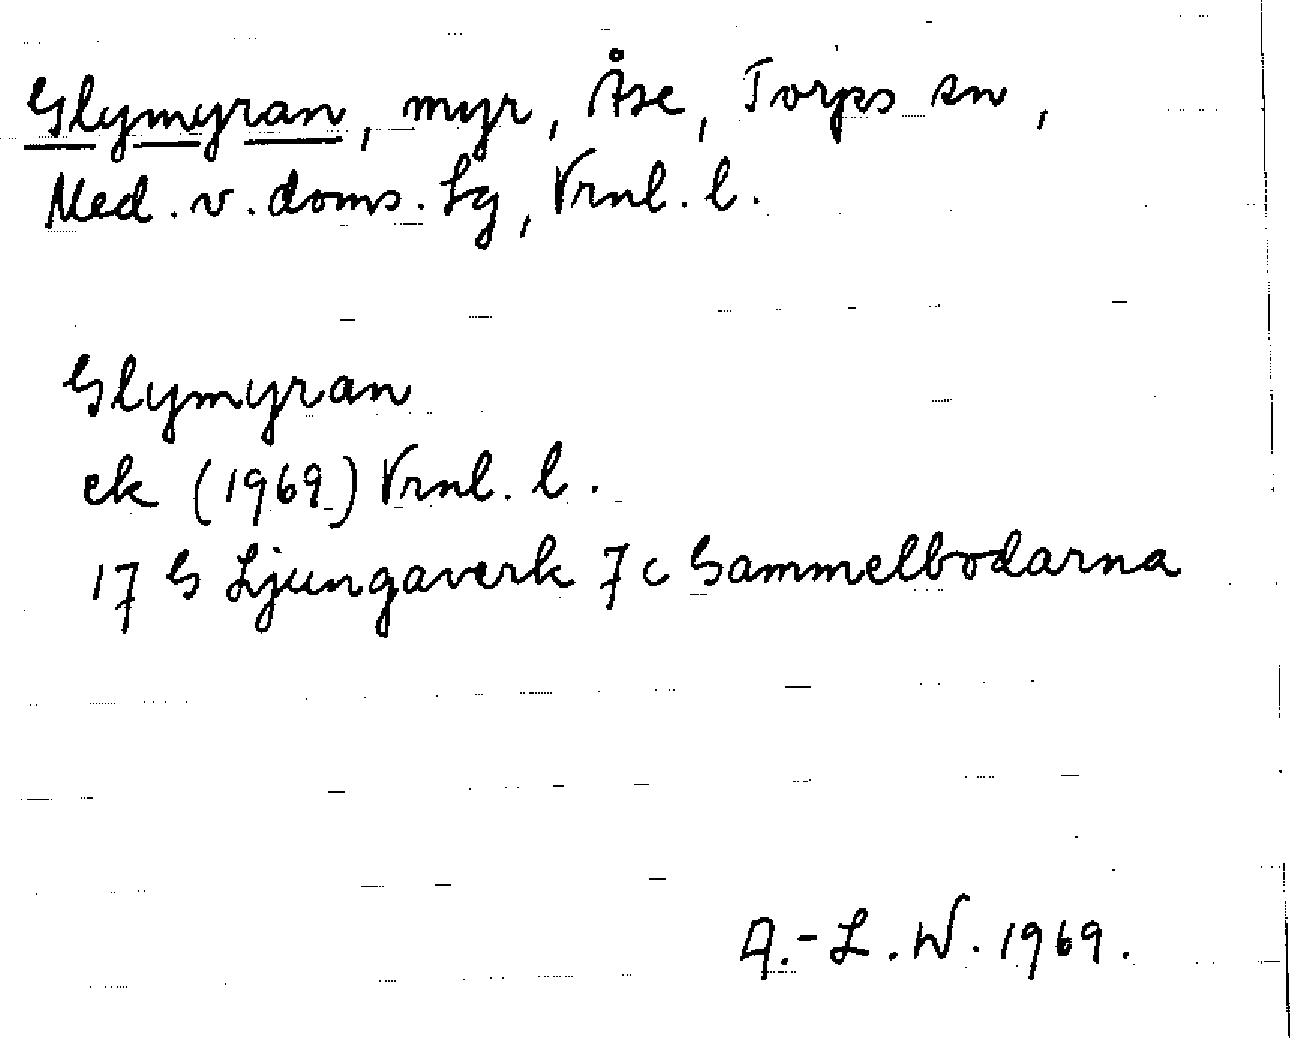 Glymyran, myr, Åse, Torps sn,
Med. v. doms. lg, Vrnl. l.
Glymyran
ek (1969) Vrnl. l.
17 G Ljungaverk 7 c Gammelbodarna
A.-L. W. 1969.